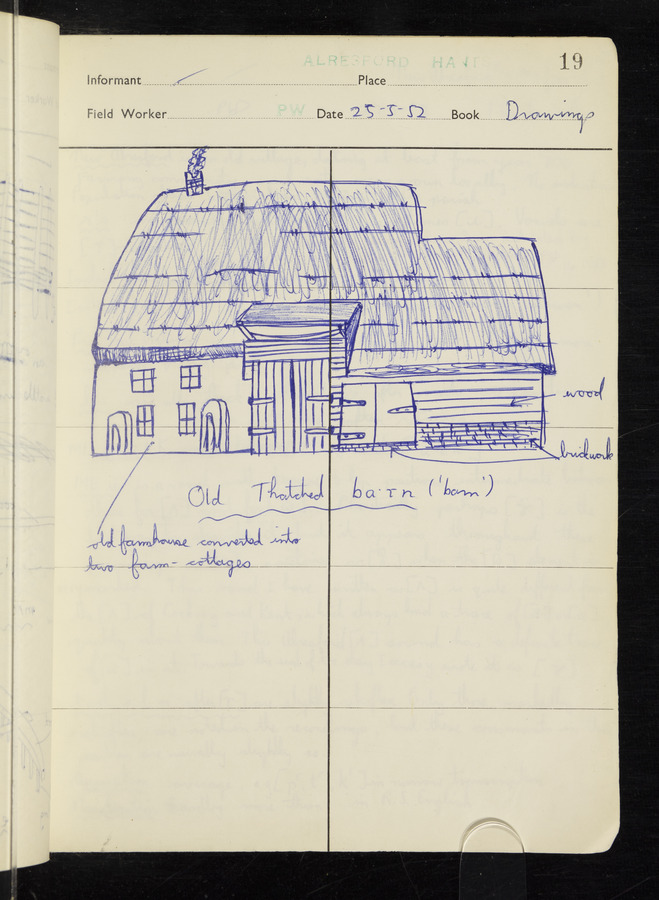 ALRESFORD HANT
19
Informant Place
Field Worker PW Date 25-5-52 Book Drawings
wood
brickwork
Old Thatched ba·rn ('barn')
old farmhouse converted into
two farm-cottages